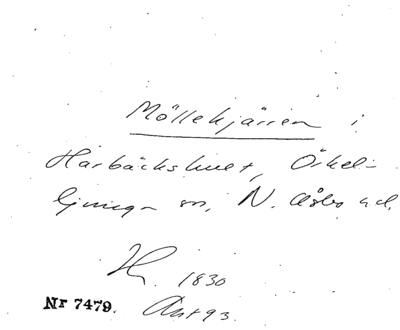 Möllekjärren i
Harbäckshult, Örkel-
ljunga sn, N. Åsbo hd.
1830
Nr 7479.